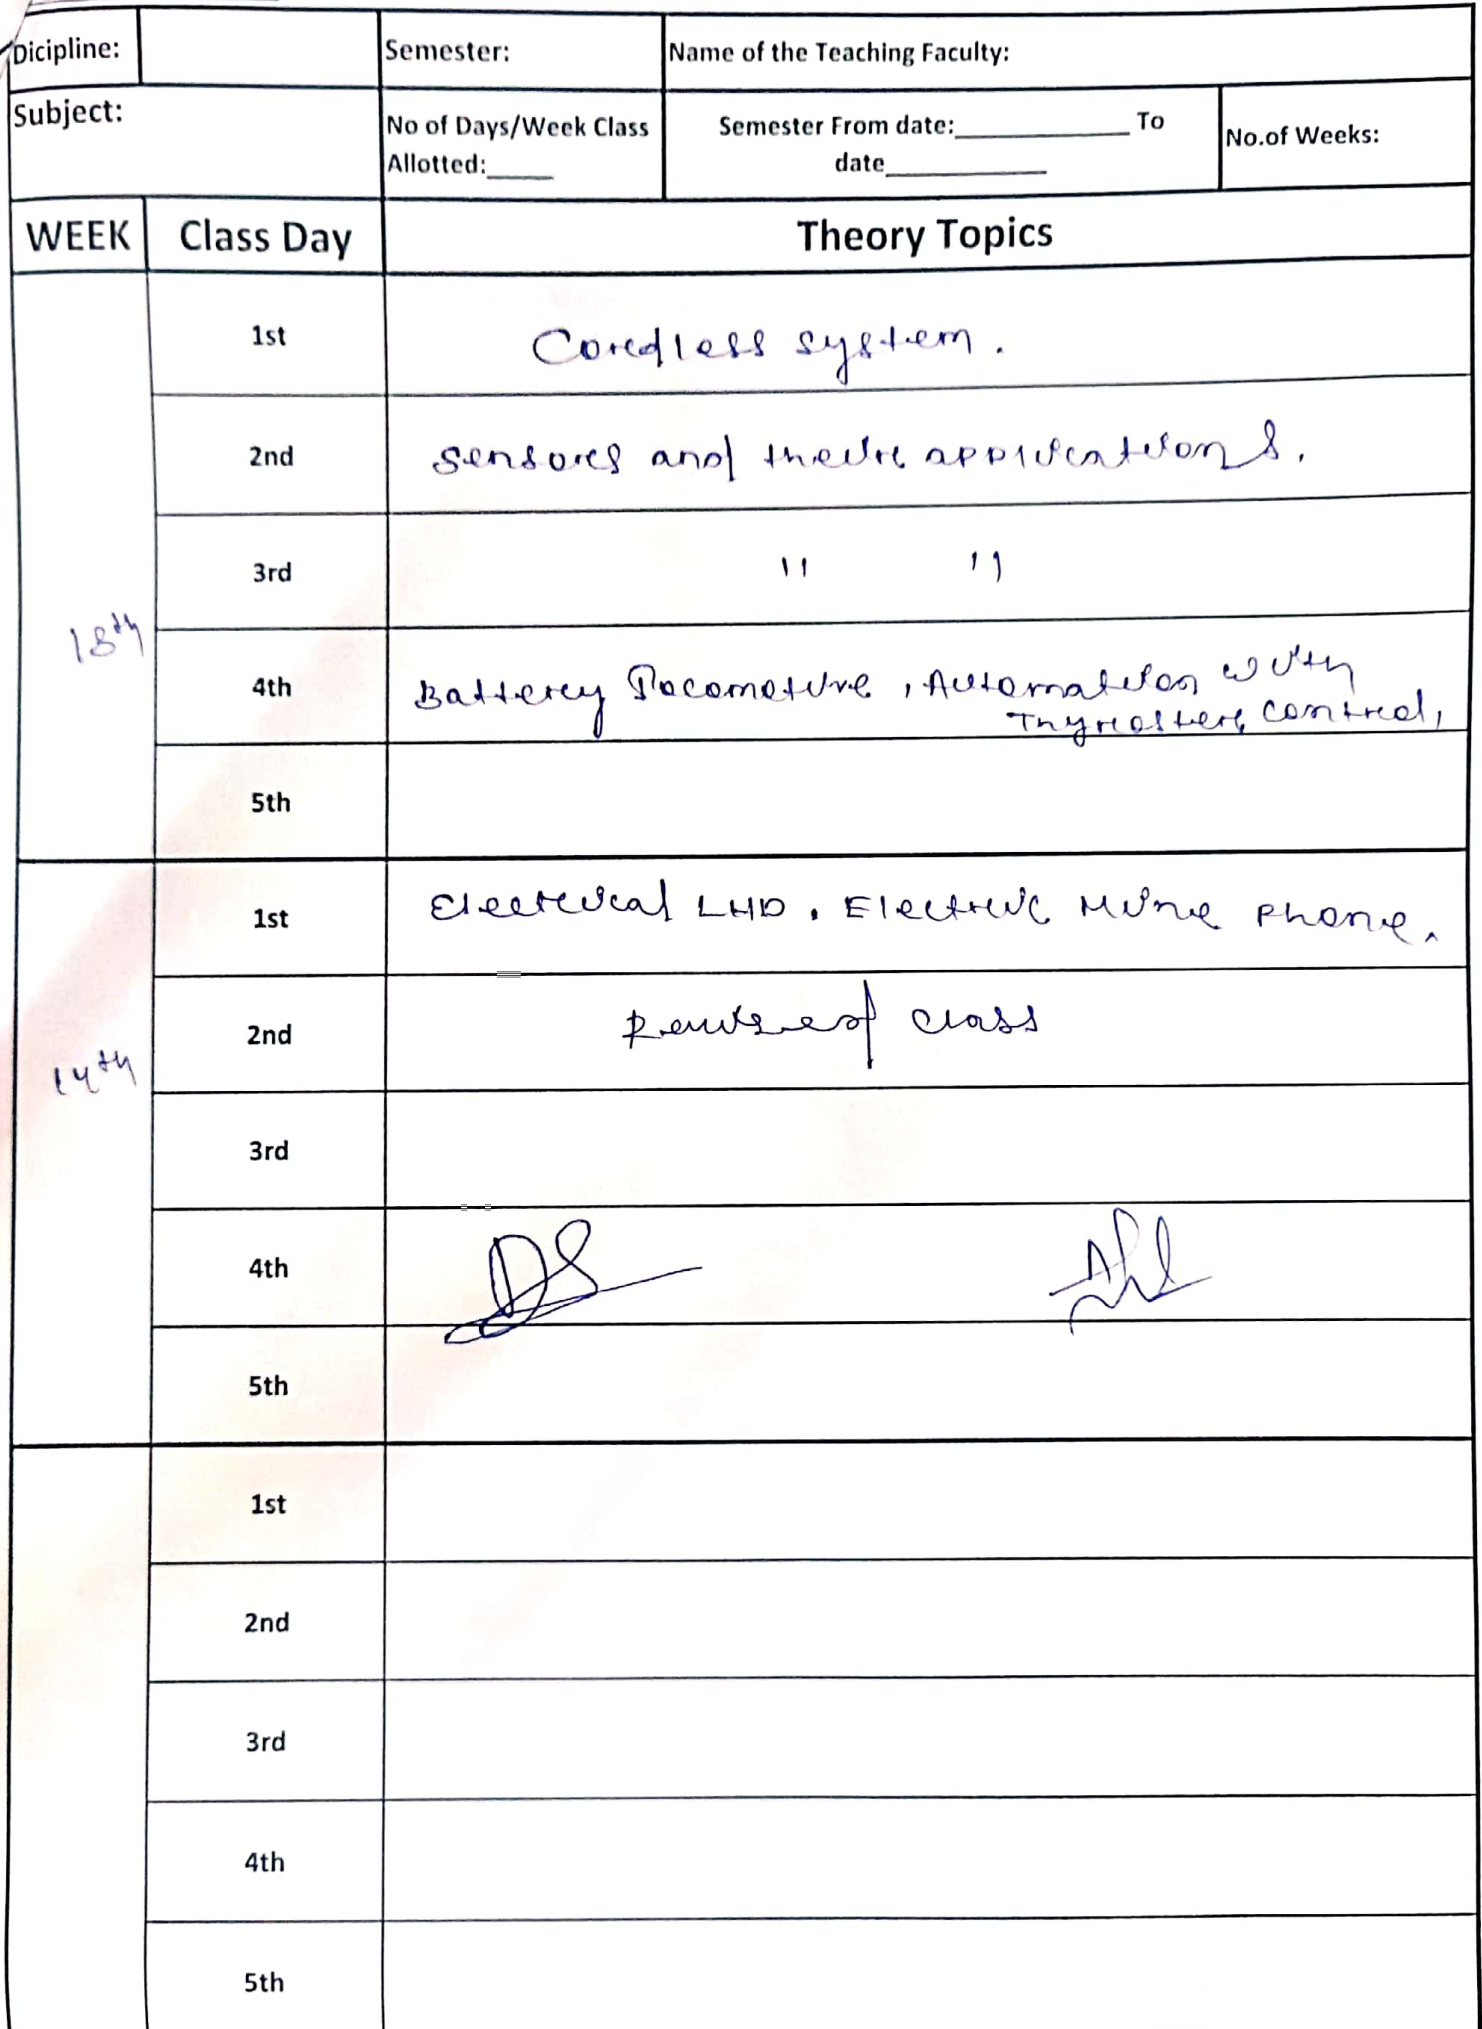 Dicipline:
Semester:
Name of the Teaching Faculty:
Subject:
No of Days/Week Class
Allotted:_____
Semester From date:_____________ To
date____________
No.of Weeks:
WEEK
Class Day
Theory Topics
1st
Cordless system.
2nd
Sensors and their applications.
3rd
" "
18th
4th
Battery Locomotive, Automation with
Thyristor control,
5th
1st
Electrical LHD, Electric Mine phone.
2nd
Revise of class
14th
3rd
4th
5th
1st
2nd
3rd
4th
5th